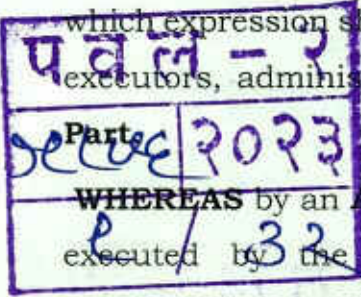 which expression s
पवल - २
executors, adminis
Part
२०२३
WHEREAS by an A
/ 32
executed by the